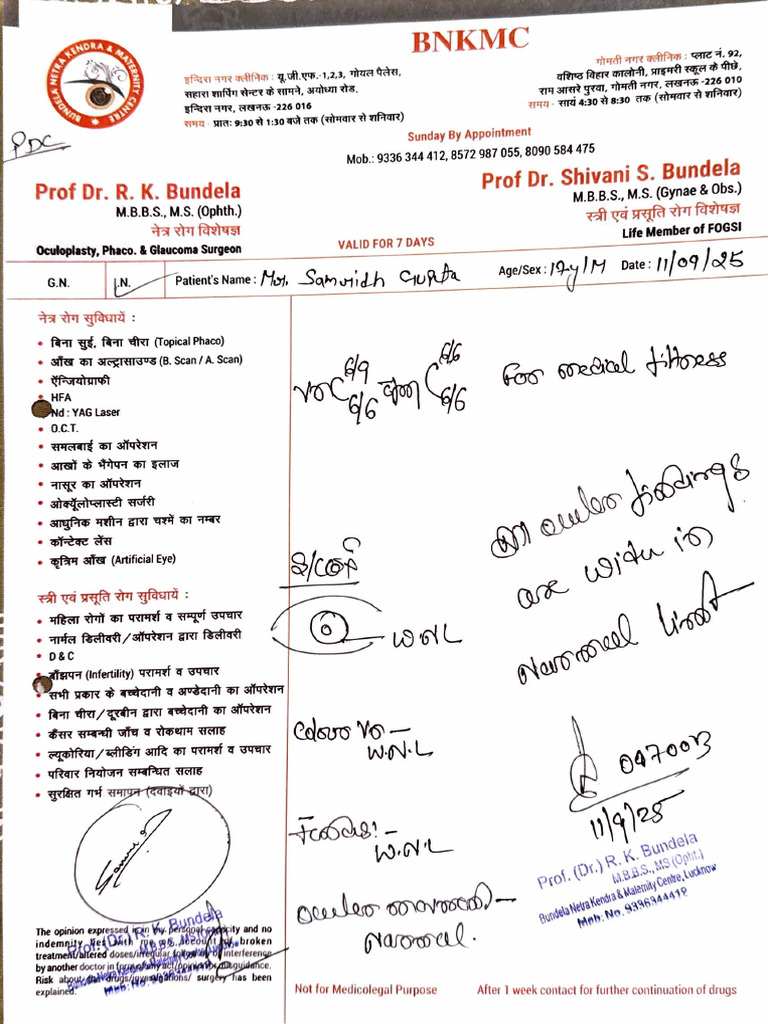 BNKMC
BUNDELA NETRA KENDRA & MATERNITY CENTRE
इन्दिरा नगर क्लीनिक : यू.जी.एफ.-1,2,3, गोयल पैलेस,
सहारा शापिंग सेन्टर के सामने, अयोध्या रोड,
इन्दिरा नगर, लखनऊ -226 016
समय - प्रातः 9:30 से 1:30 बजे तक (सोमवार से शनिवार)
गोमती नगर क्लीनिक : प्लाट नं. 92,
वशिष्ठ विहार कालोनी, प्राइमरी स्कूल के पीछे,
राम आसरे पुरवा, गोमती नगर, लखनऊ -226 010
समय - सायं 4:30 से 8:30 तक (सोमवार से शनिवार)
Sunday By Appointment
Mob.: 9336 344 412, 8572 987 055, 8090 584 475
PDC
Prof Dr. R. K. Bundela
M.B.B.S., M.S. (Ophth.)
नेत्र रोग विशेषज्ञ
Oculoplasty, Phaco. & Glaucoma Surgeon
VALID FOR 7 DAYS
Prof Dr. Shivani S. Bundela
M.B.B.S., M.S. (Gynae & Obs.)
स्त्री एवं प्रसूति रोग विशेषज्ञ
Life Member of FOGSI
G.N. I.N. Patient's Name : Mr. Samridh Gupta Age/Sex : 17y/M Date : 11/09/25
नेत्र रोग सुविधायें :
• बिना सुई, बिना चीरा (Topical Phaco)
• आँख का अल्ट्रासाउण्ड (B. Scan / A. Scan)
• ऍन्जियोग्राफी
• HFA
Nd : YAG Laser
• O.C.T.
• समलबाई का ऑपरेशन
• आखों के भैंगेपन का इलाज
• नासूर का ऑपरेशन
• ओक्यूँलोप्लास्टी सर्जरी
• आधुनिक मशीन द्वारा चश्में का नम्बर
• कॉन्टेक्ट लेंस
• कृत्रिम आँख (Artificial Eye)
स्त्री एवं प्रसूति रोग सुविधायें :
• महिला रोगों का परामर्श व सम्पूर्ण उपचार
• नार्मल डिलीवरी/ऑपरेशन द्वारा डिलीवरी
• D & C
बाँझपन (Infertility) परामर्श व उपचार
• सभी प्रकार के बच्चेदानी व अण्डेदानी का ऑपरेशन
• बिना चीरा/दूरबीन द्वारा बच्चेदानी का ऑपरेशन
• कैंसर सम्बन्धी जाँच व रोकथाम सलाह
• ल्यूकोरिया/ब्लीडिंग आदि का परामर्श व उपचार
• परिवार नियोजन सम्बन्धित सलाह
• सुरक्षित गर्भ समापन (दवाइयों द्वारा)
For medical fitness
Vn 6/9 6/6
6/6 6/6
All ocular findings
are with in
Normal limit
W.N.L
Colour Vn –
W.N.L
Fundus: –
W.N.L
Ocular –
Normal.
047003
11/9/25
Prof. (Dr.) R. K. Bundela
M.B.B.S., MS (Opht.)
Bundela Netra Kendra & Maternity Centre, Lucknow
Mob. No. 9336344412
The opinion expressed is in my personal capacity and no
indemnity lies with me on account of broken
treatment/altered doses/irregular followup/interference
by another doctor in form of any act/opinion or misguidance.
Risk about the drugs/investigations/ surgery has been
explained.
Prof. (Dr.) R. K. Bundela
M.B.B.S., MS (Opht.)
Bundela Netra Kendra & Maternity Centre, Lucknow
Mob. No. 9336344412
Not for Medicolegal Purpose
After 1 week contact for further continuation of drugs